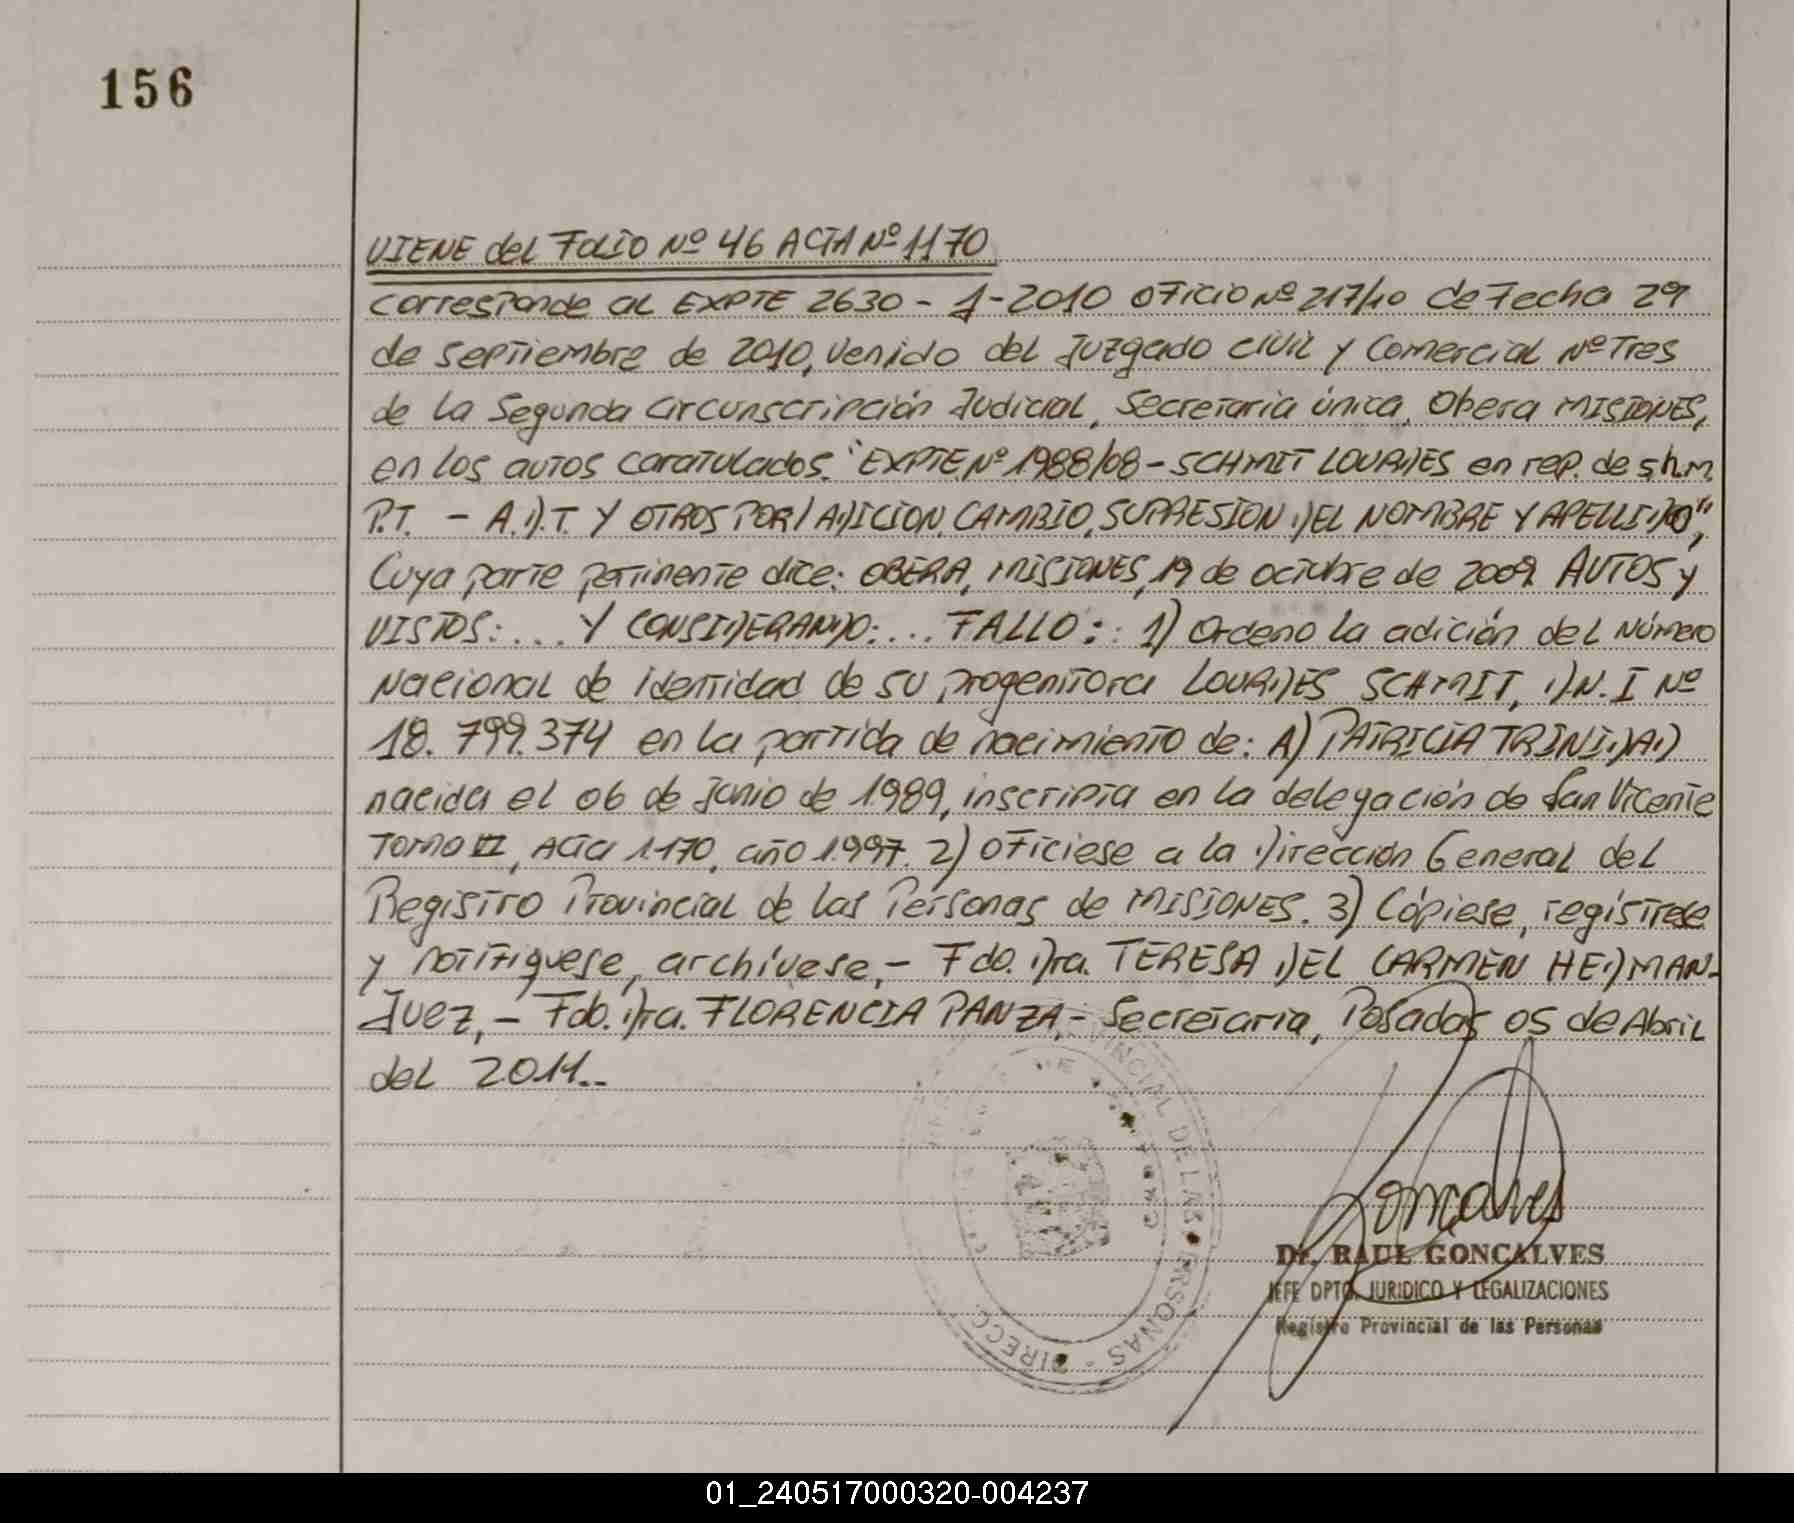 156
VIENE del FOLIO Nº 46 ACTA Nº 1170
Corresponde al EXPTE 2630 - J - 2010 OFICIO Nº 217/10 de Fecha 29
de septiembre de 2010, venido del Juzgado civil y Comercial Nº Tres
de la Segunda circunscripción Judicial, Secretaría única, Obera MISIONES,
en los autos caratulados. "EXPTE Nº 1988/08 - SCHMIT LOURDES en rep. de s.h.m.
P.T. - A.D.T. Y OTROS POR/ADICION, CAMBIO, SUPRESION DEL NOMBRE Y APELLIDO",
Cuya parte pertinente dice: OBERA, MISIONES, 19 de octubre de 2009. AUTOS y
VISTOS: ... Y CONSIDERANDO: ... FALLO: : 1) Ordeno la adición del Número
Nacional de identidad de su progenitora LOURDES SCHMIT, D.N.I Nº
18.799.374 en la partida de nacimiento de: A) PATRICIA TRINIDAD
nacida el 06 de junio de 1989, inscripta en la delegación de San Vicente
TOMO III, Acta 1170, año 1997. 2) OFíciese a la Dirección General del
Registro Provincial de las Personas de MISIONES. 3) Cópiese, regístrese
y notifiquese, archívese,- Fdo. Dra. TERESA DEL CARMEN HEDMAN-
Juez,- Fdo. Dra. FLORENCIA PANZA - Secretaria, Posadas 05 de Abril
del 2011..
PROVINCIAL DE LAS PERSONAS - DIRECC
Goncalves
Dr. RAUL GONCALVES
JEFE DPTO. JURIDICO Y LEGALIZACIONES
Registro Provincial de las Personas
01_240517000320-004237